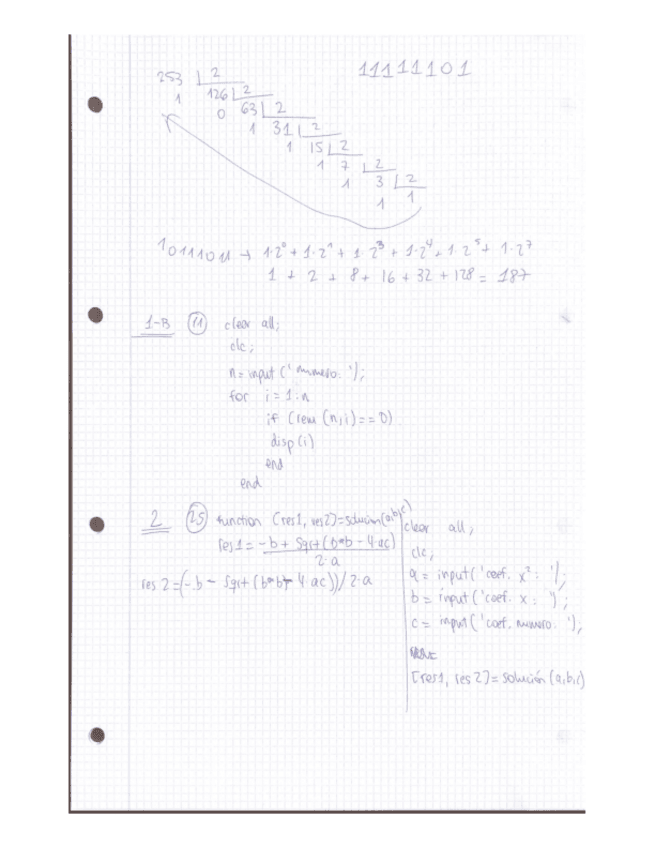 11111101
253 | 2
1 126 | 2
0 63 | 2
1 31 | 2
1 15 | 2
1 7 | 2
1 3 | 2
1 1
10111011 → 1·2⁰ + 1·2¹ + 1·2³ + 1·2⁴ + 1·2⁵ + 1·2⁷
1 + 2 + 8 + 16 + 32 + 128 = 187
1-B 11 clear all;
clc;
n = input ('numero: ');
for i = 1:n
if (rem (n,i) == 0)
disp(i)
end
end
2 25 function [res1, res2]=solución(a,b,c)
res1 = -b + sqrt(b*b - 4·ac)
2·a
res2 = (-b - sqrt (b*b - 4 ac)) / 2·a
clear all;
clc;
a = input('coef. x²: ');
b = input('coef. x: ');
c = input('coef. numero: ');
[res1, res2] = solución (a,b,c)